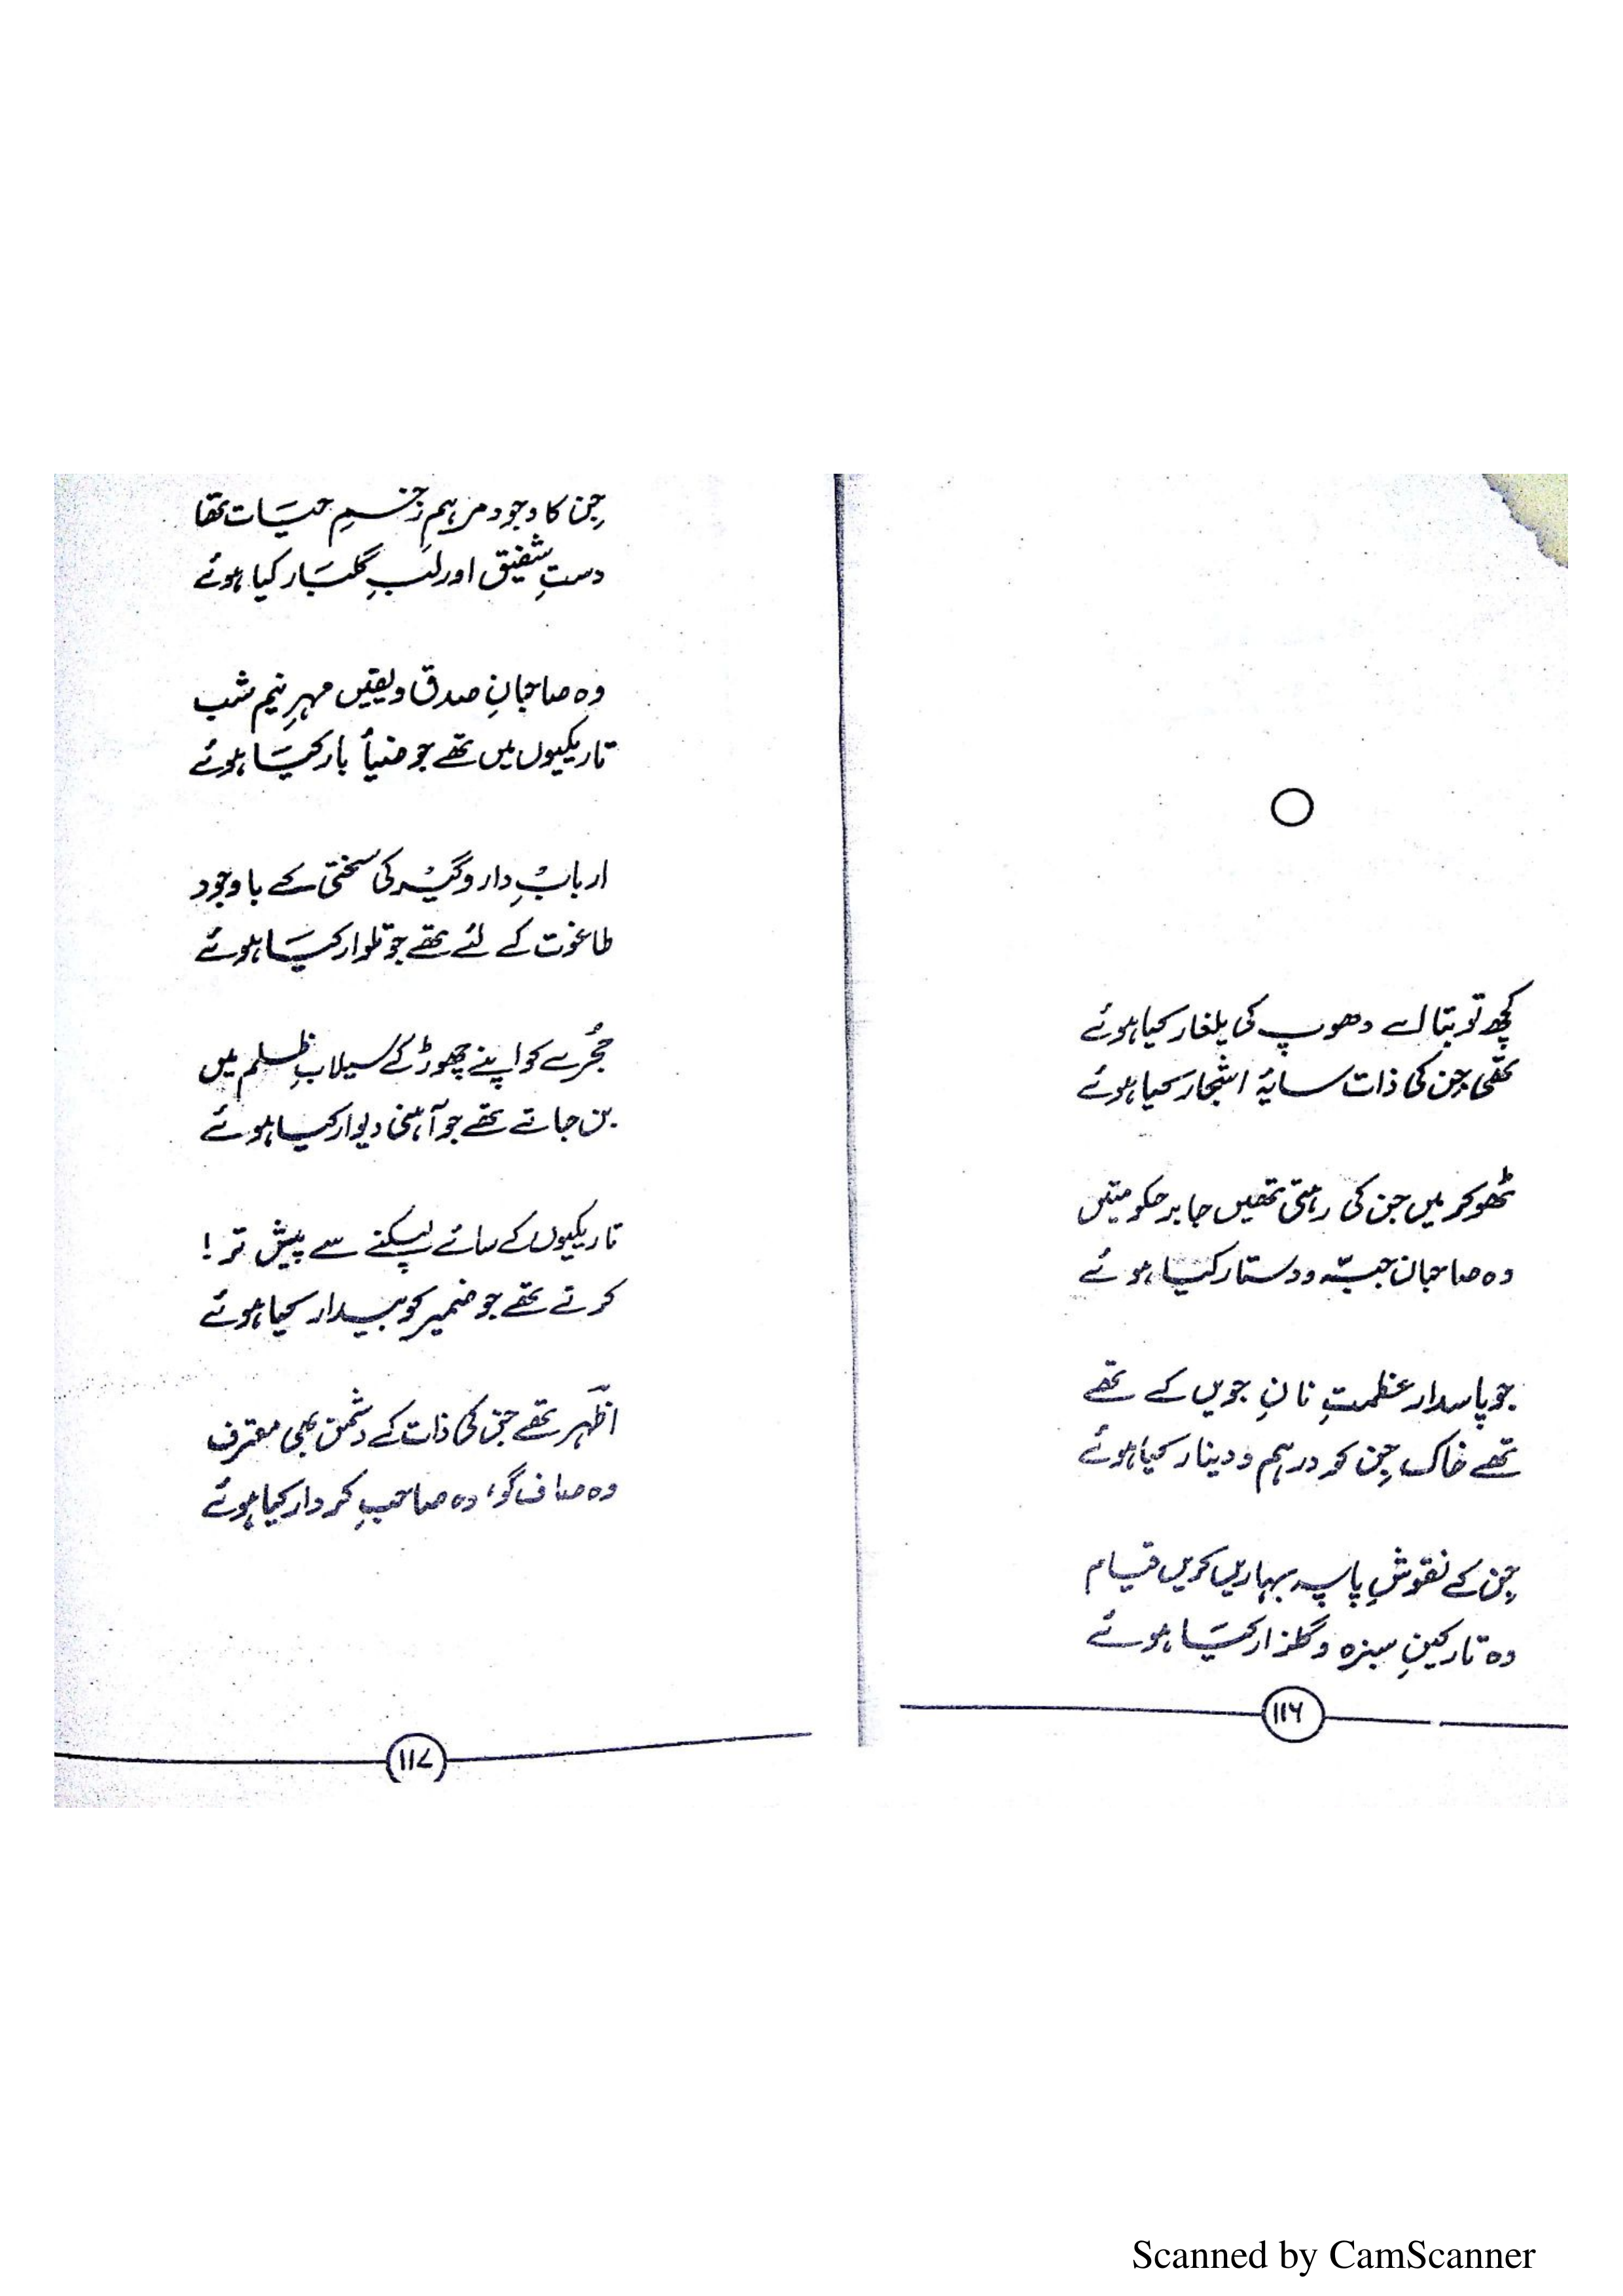 کچھ تو بتا اے دھوپ کی یلغار کیا ہوئے
تھی جن کی ذات سایۂ اشجار کیا ہوئے
ٹھوکر میں جن کی رہتی تھیں جابر حکومتیں
وہ صاحبان جبّہ و دستار کیا ہوئے
جو پاسدار عظمتِ نانِ جویں کے تھے
تھے خاک جِن کو درہم و دینار کیا ہوئے
جِن کے نقوشِ پا پہ بہاریں کریں قیام
وہ تارکینِ سبزہ و گلزار کیَا ہوئے
۱۱۶
جِن کا وجود مرہمِ زخمِ حیَات تھا
دستِ شفیق اور لبِ گلبَار کیا ہوئے
وہ صاحبانِ صدق و یقیں مہرِ نیم شب
تاریکیوں میں تھے جو ضیأ بار کیَا ہوئے
اربابِ دار و گیر کی سختی کے باوجود
طاغوت کے لئے تھے جو تلوار کیَا ہوئے
حُجرے کو اپنے چھوڑ کے سیلابِ ظلم میں
بن جاتے تھے جو آہنی دیوار کیا ہوئے
تاریکیوں کے سائے لپکنے سے پیش تر!
کرتے تھے جو ضمیر کو بیدار کیا ہوئے
اظہر تھے جن کی ذات کے دشمن بھی معترف
وہ صاف گو، وہ صاحبِ کردار کیا ہوئے
۱۱۷
Scanned by CamScanner